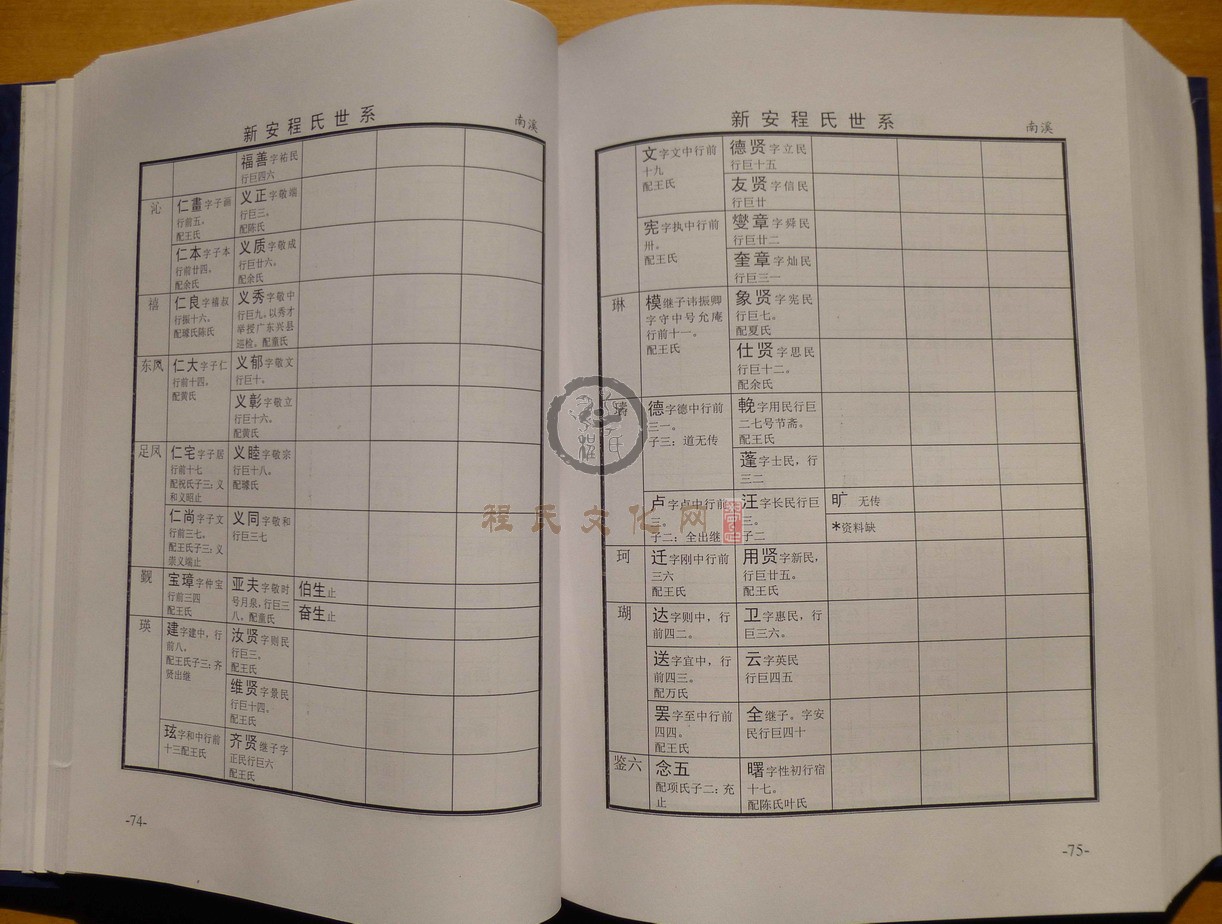 新安程氏世系
南溪
福善字祐民
行巨四六
沁
仁畫字子画
行前五。
配王氏
义正字敬端
行巨三。
配陈氏
仁本字子本
行前廿四。
配余氏
义质字敬成
行巨廿六。
配余氏
禧
仁良字禧叔
行振十六。
配璩氏陈氏
义秀字敬中
行巨九。以秀才
举授广东兴县
巡检。配童氏
东凤
仁大字子仁
行前十四。
配黄氏
义郁字敬文
行巨十。
义彰字敬立
行巨十六。
配黄氏
足凤
仁宅字子居
行前十七
配祝氏子三：义
和义昭止
义睦字敬宗
行巨十八。
配璩氏
仁尚字子文
行前三七。
配王氏子三：义
崇义端止
义同字敬和
行巨三七
觐
宝璋字仲宝
行前三四
配王氏
亚夫字敬时
号月泉，行巨三
八，配童氏
伯生止
奋生止
瑛
建字建中，行
前八。
配王氏子三：齐
贤出继
汝贤字则民
行巨三。
配王氏
维贤字景民
行巨十四。
配王氏
玹字和中行前
十三配王氏
齐贤继子字
正民行巨六
配王氏
-74-
新安程氏世系
南溪
文字文中行前
十九
配王氏
德贤字立民
行巨十五
友贤字信民
行巨廿
宪字执中行前
卅。
配王氏
燮章字舜民
行巨廿二
奎章字灿民
行巨三一
琳
模继子讳振卿
字守中号允庵
行前十一。
配王氏
象贤字宪民
行巨七。
配夏氏
仕贤字思民
行巨十二。
配余氏
德字德中行前
三一。
子三：道无传
輓字用民行巨
二七号节斋。
配王氏
蓬字士民，行
三二
卢字卢中行前
三。
子二：全出继
汪字长民行巨
三。
子二
旷 无传
*资料缺
珂
迁字刚中行前
三六
配王氏
用贤字新民，
行巨廿五。
配王氏
瑚
达字则中，行
前四二。
卫字惠民，行
巨三六。
送字宜中，行
前四三。
配万氏
云字英民
行巨四五
罢字至中行前
四四。
配王氏
全继子。字安
民行巨四十
鉴六
念五
配项氏子二：充
止
曙字性初行宿
十七。
配陈氏叶氏
-75-
程氏文化网